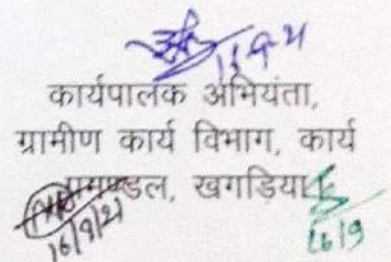 कार्यपालक अभियंता,
ग्रामीण कार्य विभाग, कार्य
प्रमण्डल, खगड़िया।
16/9/21
16/9